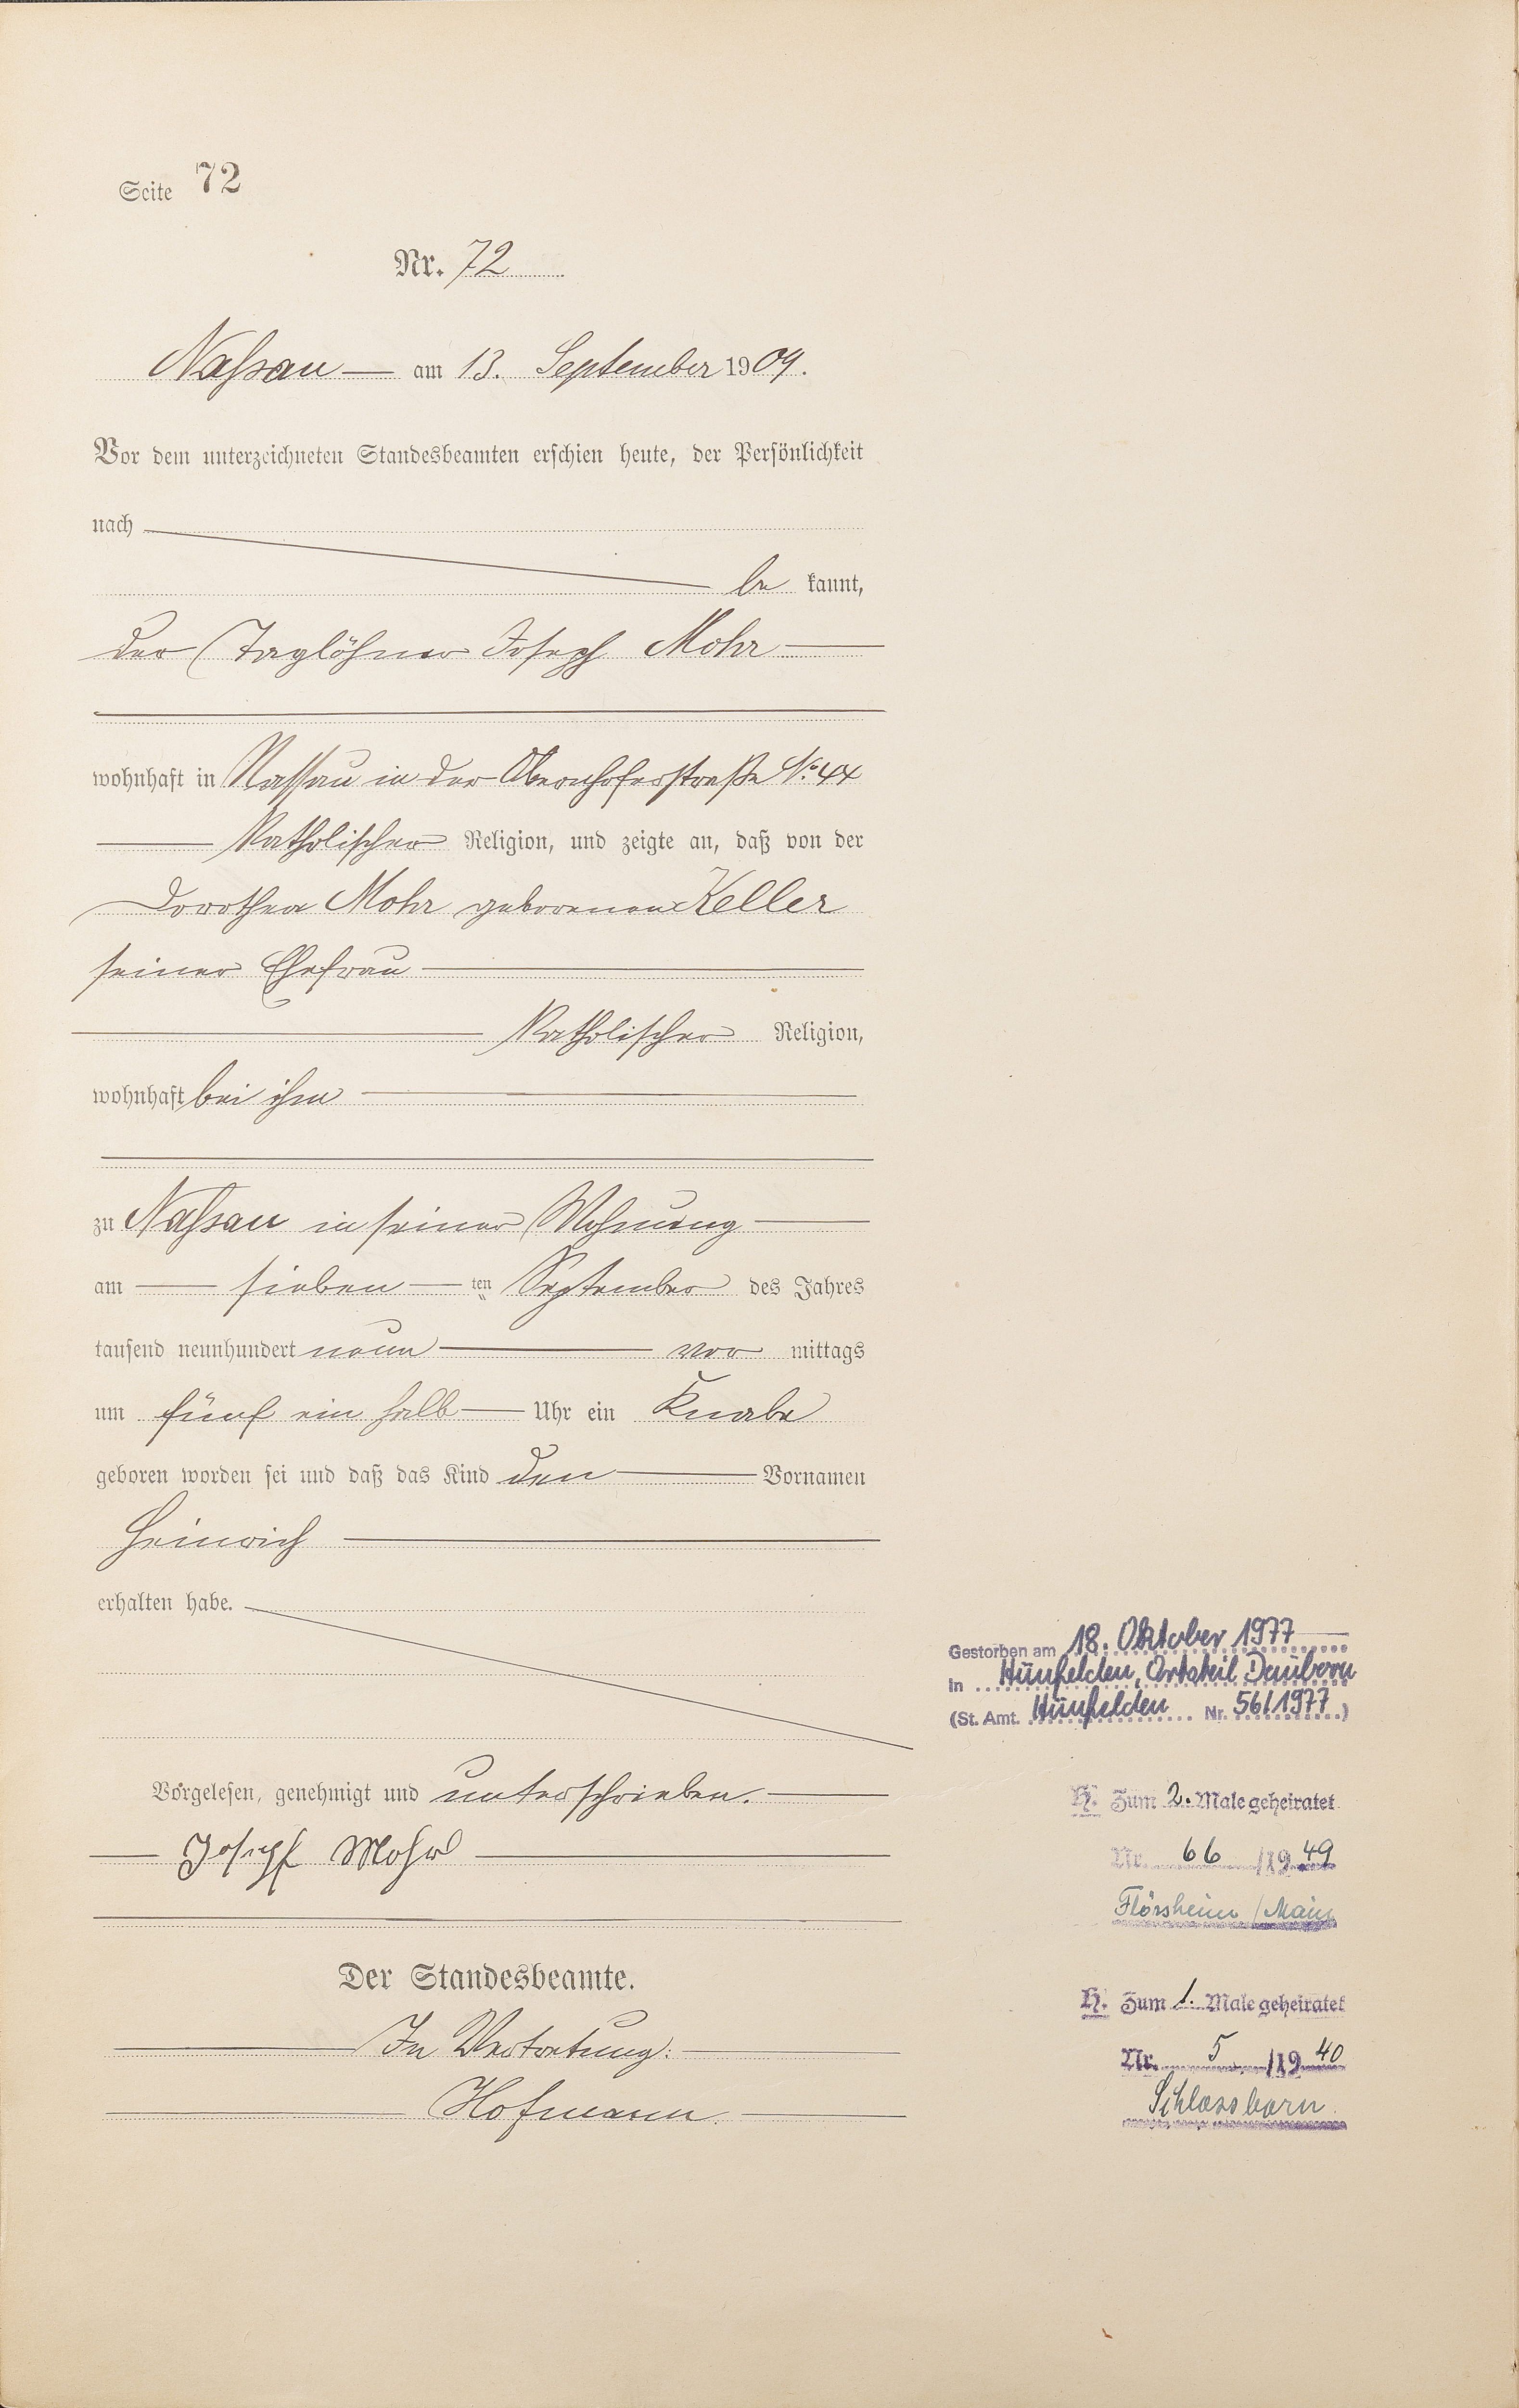 Seite 72
Nr. 72
Nassau am 13. September 1909.
Vor dem unterzeichneten Standesbeamten erschien heute, der Persönlichkeit
nach
be kannt,
der Taglöhner Joseph Mohr
wohnhaft in Nassau in der Obernhoferstraße No. 44
Katholischer Religion, und zeigte an, daß von der
Dorothea Mohr geborenen Keller
seiner Ehefrau
Katholischer Religion,
wohnhaft bei ihm
zu Nassau in seiner Wohnung
am sieben ten September des Jahres
tausend neunhundert neun vor mittags
um fünf ein halb Uhr ein Knabe
geboren worden sei und daß das Kind den Vornamen
Heinrich
erhalten habe.
Vorgelesen, genehmigt und unterschrieben.
Joseph Mohr
Der Standesbeamte.
In Vertretung:
Hofmann
Gestorben am 18. Oktober 1977
in Hünfelden, Ortsteil Dauborn
(St. Amt. Hünfelden Nr. 56/1977)
H. Zum 2. Male geheiratet
Nr. 66 /1949
Flörsheim / Main
H. Zum 1. Male geheiratet
Nr. 5 /1940
Schlossborn